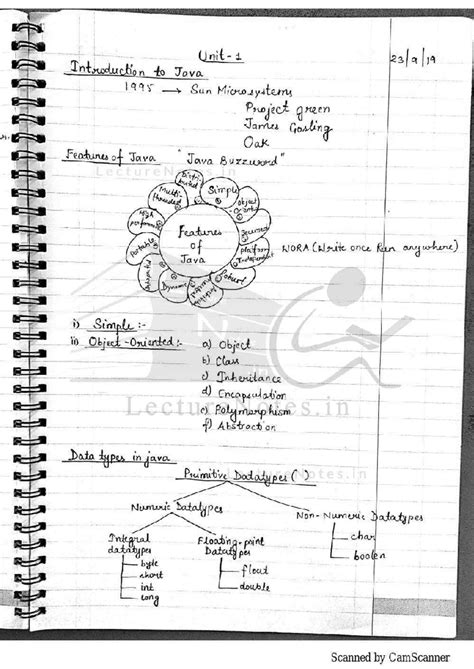 Unit-1
23/9/19
Introduction to Java
1995 → Sun Microsystems
Project green
James Gosling
Oak
Features of Java "Java Buzzword"
LectureNotes.in
Features of Java
Simple
Object
Secured
platform Independent
Robust
Dynamic
Interpreted
Portable
High performance
Multi-threaded
Distributed
WORA (Write once Run anywhere)
i) Simple :-
ii) Object-Oriented :- a) Object
b) Class
c) Inheritance
d) Encapsulation
e) Polymorphism
f) Abstraction
LectureNotes.in
Data types in java
LectureNotes.in
Primitive Datatypes
Numeric Datatypes
Non-Numeric Datatypes
char
boolen
Integral datatypes
Floating-point Datatypes
byte
short
int
long
float
double
Scanned by CamScanner